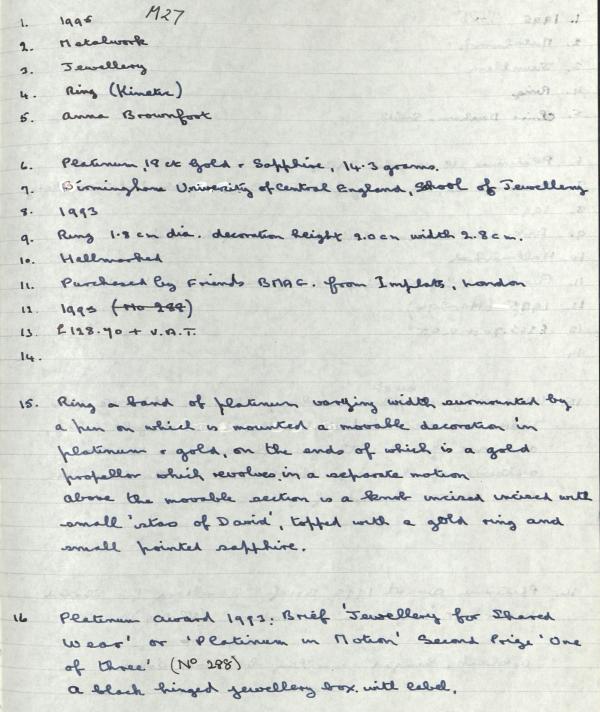 M27
1. 1995
2. Metalwork
3. Jewellery
4. Ring (Kinetic)
5. Anna Brownfoot
6. Platinum, 18 ct Gold + Sapphire, 14.3 grams.
7. Birmingham University of Central England, School of Jewellery
8. 1993
9. Ring 1.8 cm dia. decoration height 2.0 cm width 2.8 cm.
10. Hallmarked
11. Purchased by Friends BMAG. from Implats, London
12 1995 (No 288)
13 £128.70 + V.A.T.
14.
15. Ring a band of platinum varying width surmounted by
a pin on which is mounted a movable decoration in
platinum + gold, on the ends of which is a gold
propellor which revolves in a separate motion
above the movable section is a knob incised incised with
small 'stas of David', topped with a gold ring and
small pointed sapphire.
16 Platinum award 1993: Brief 'Jewellery for Shared
Wear' or 'Platinum in Motion' Second Prize 'One
of three' (No 288)
A black hinged jewellery box with label.